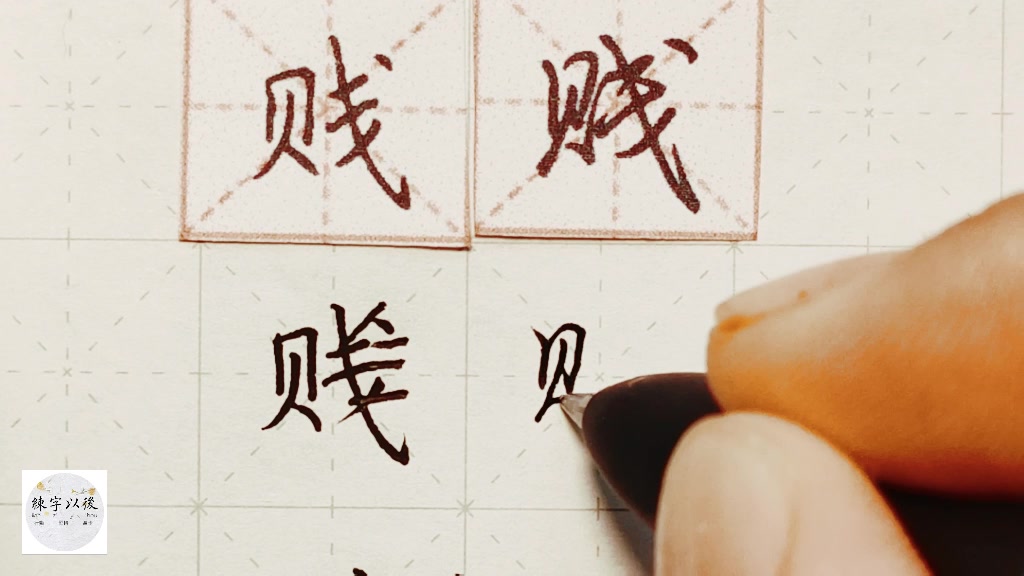 贱 贱
贱 贝
練字以後